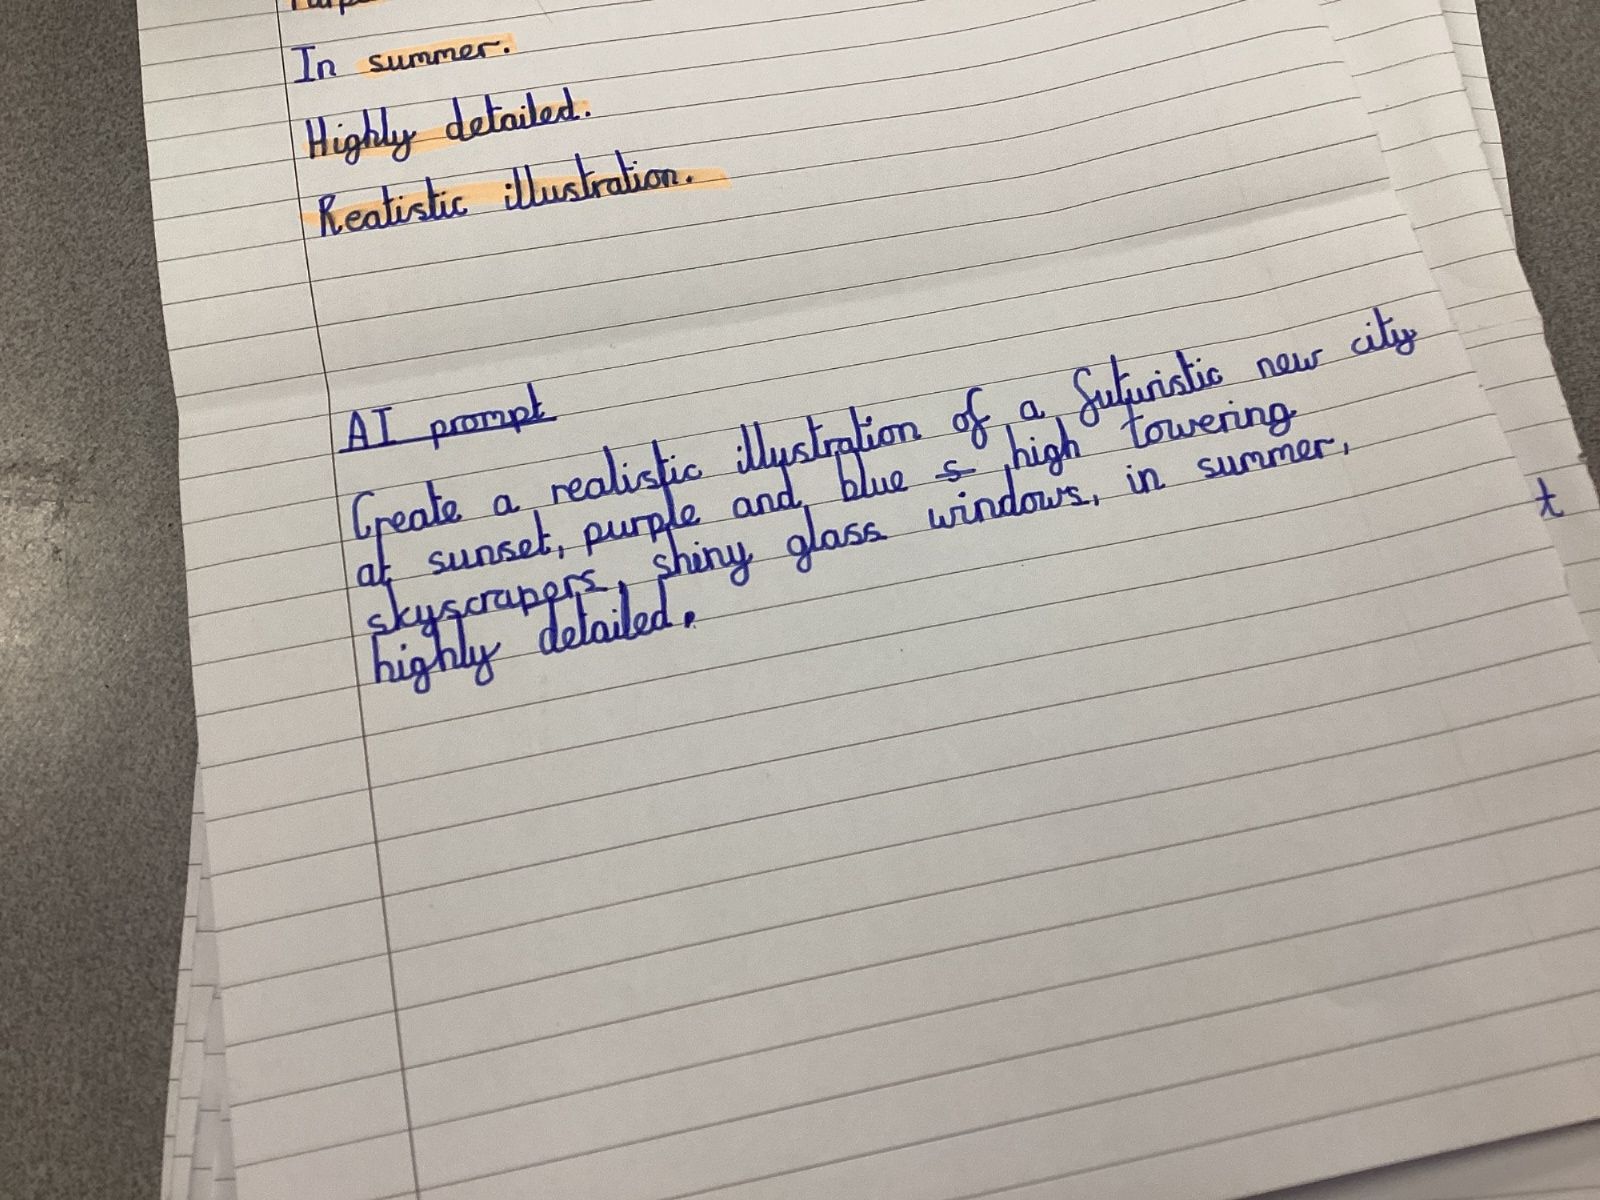 In summer.
Highly detailed.
Realistic illustration.
AI prompt
Create a realistic illustration of a futuristic new city
at sunset, purple and blue s high towering
skyscrapers, shiny glass windows, in summer,
highly detailed.
t